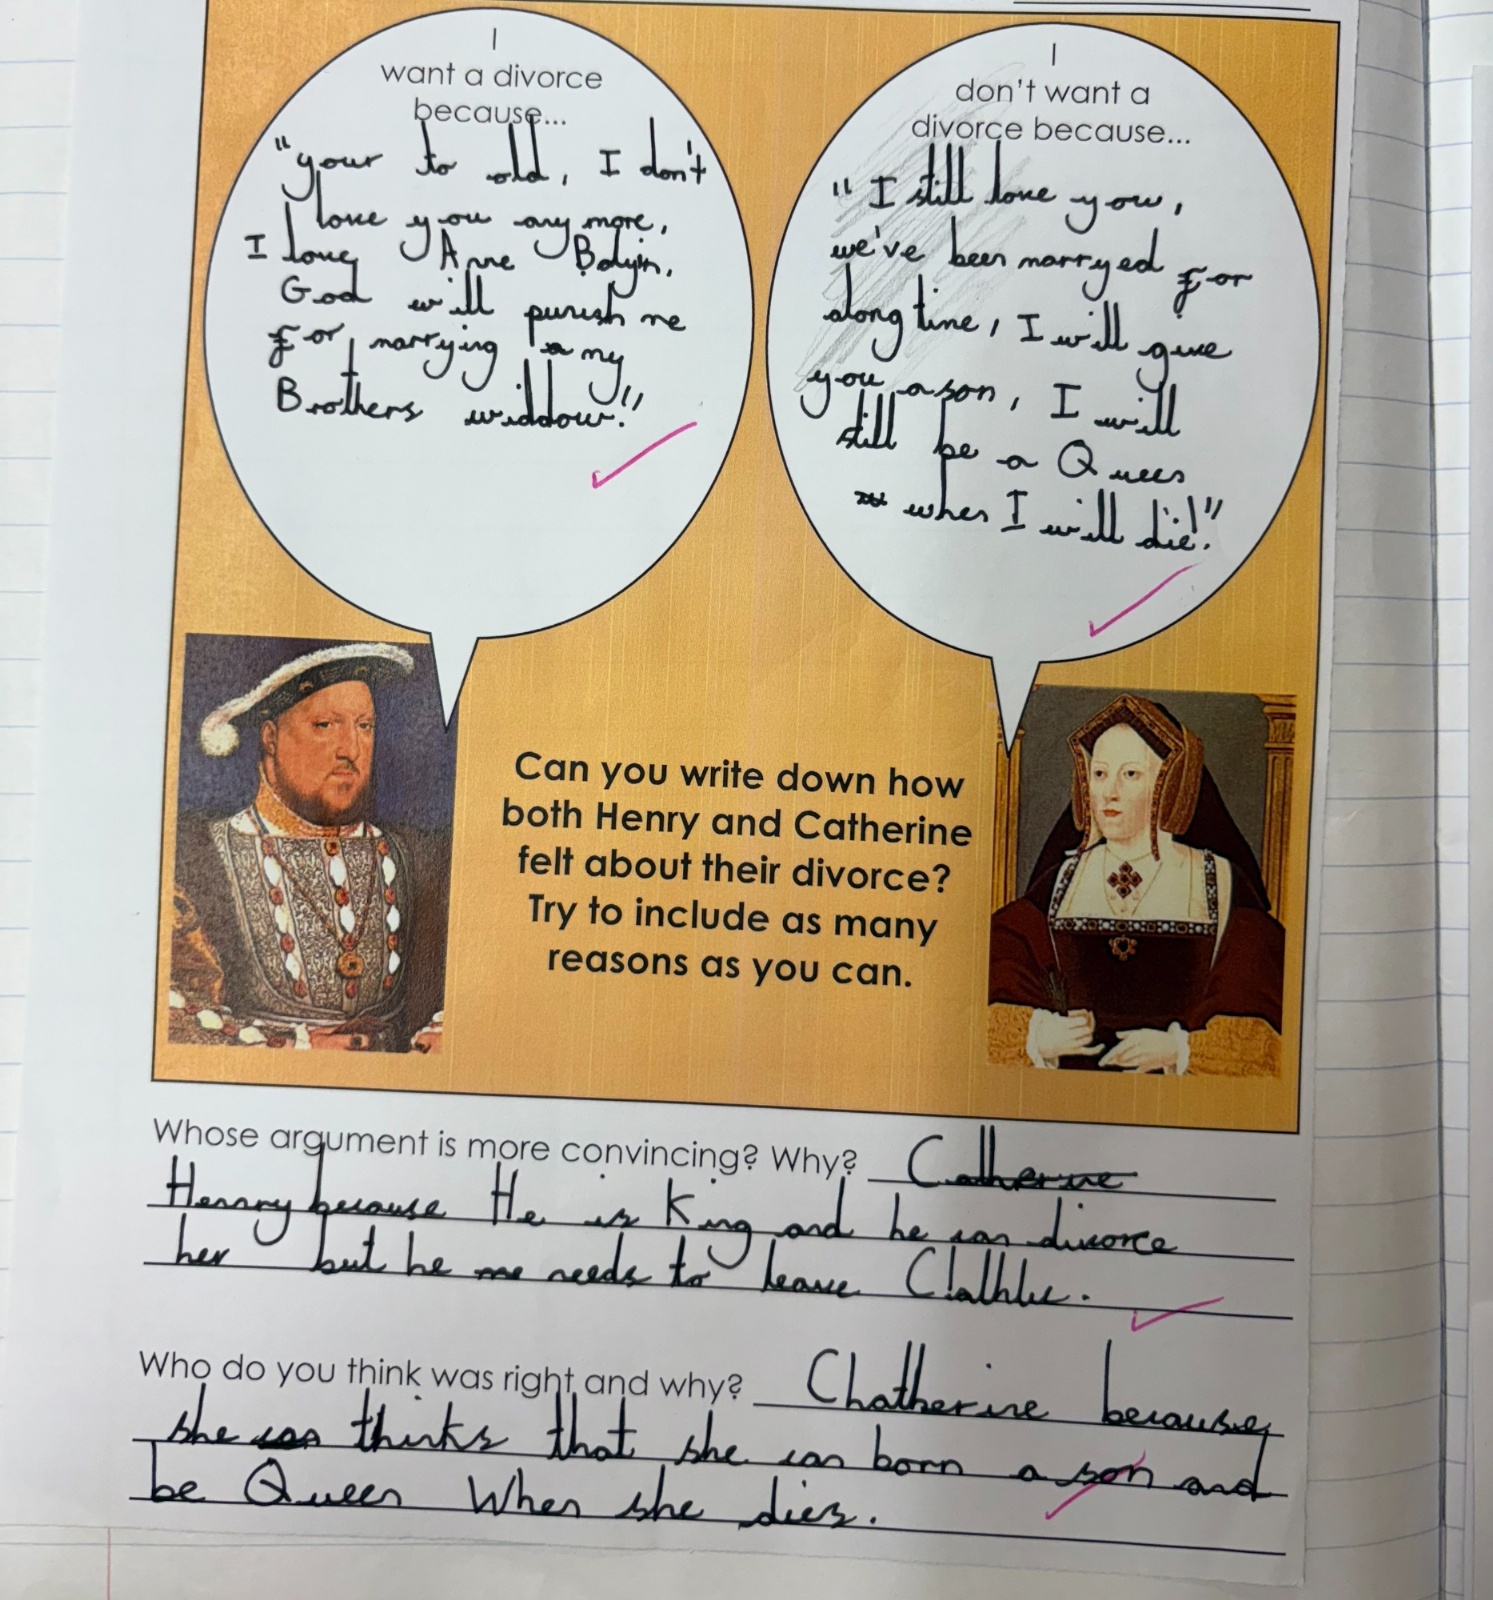 I
want a divorce
because...
"your to old, I don't
love you any more,
I love Anne Bolyin.
God will punish me
for marrying my
Brothers widdow!"
I
don't want a
divorce because...
"I still love you,
we've been marryed for
along time, I will give
you a son, I will
still be a Queen
when I will die!"
Can you write down how
both Henry and Catherine
felt about their divorce?
Try to include as many
reasons as you can.
Whose argument is more convincing? Why? Catherine
Hennry because He is King and he can divorce
her but he needs to leave
Who do you think was right and why? Chatherine because
she thinks that she can born a son and
be Queen When she dies.